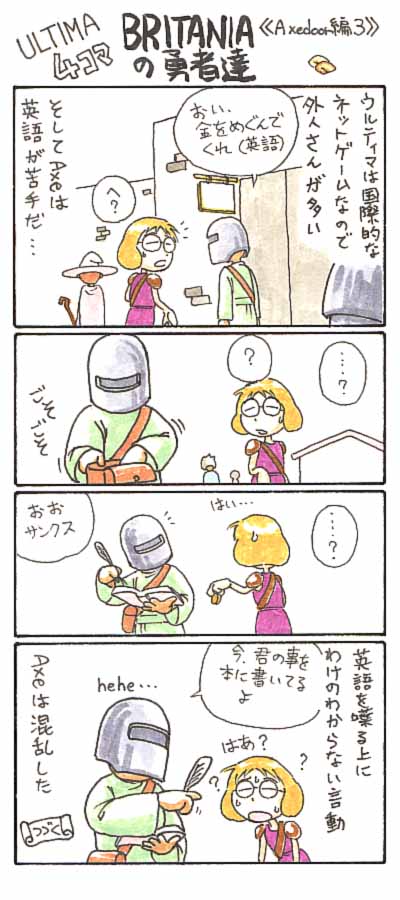 ULTIMA
4コマ
BRITANIA
の勇者達
《Axedoor編3》
ウルティマは国際的な
ネットゲームなので
外人さんが多い
おい、
金をめぐんで
くれ(英語)
へ?
そしてAxeは
英語が苦手だ…
……?
?
ごそ
ごそ
……?
はい…
おお
サンクス
英語を喋る上に
わけのわからない言動
今、君の事を
本に書いてる
よ
はあ?
?
?
hehe…
Axeは混乱した
つづく